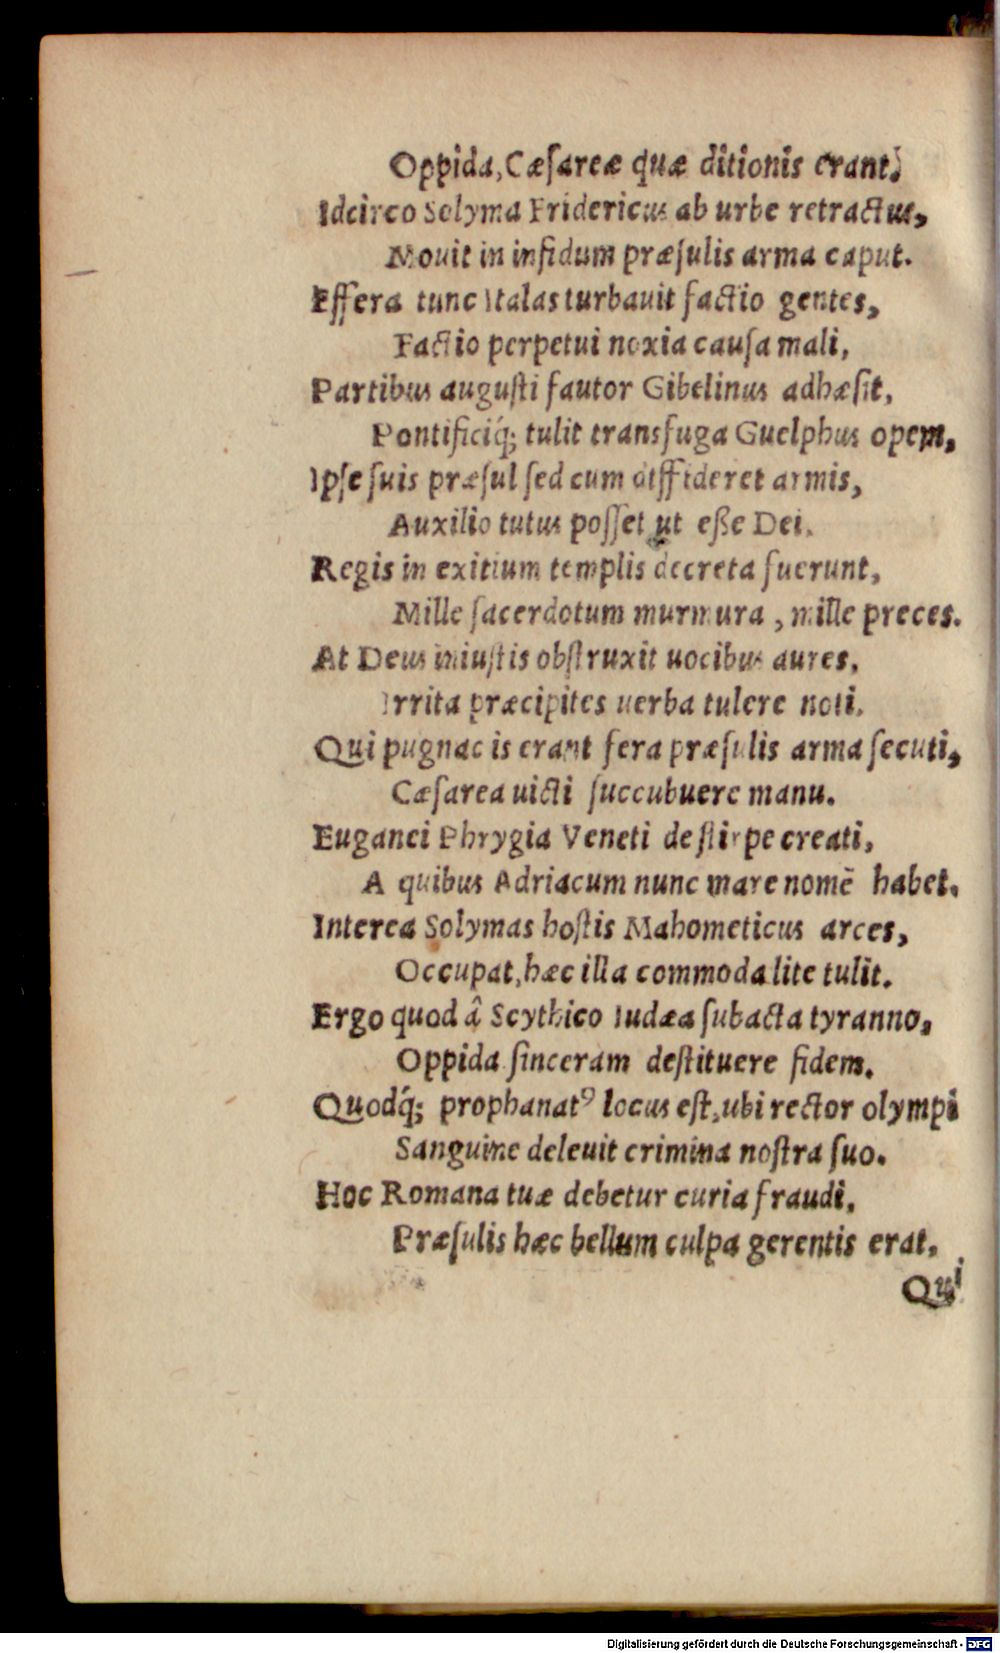 Oppida, Cæſareæ quæ ditionis erant.
Idcirco Solyma Fridericus ab urbe retractus,
Mouit in infidum præſulis arma caput.
Effera tunc Italas turbauit factio gentes,
Factio perpetui noxia cauſa mali,
Partibus auguſti fautor Gibelinus adhæſit,
Pontificiq́; tulit transfuga Guelphus opem,
Ipſe ſuis præſul ſed cum diffideret armis,
Auxilio tutus poſſet ut eße Dei,
Regis in exitium templis decreta fuerunt,
Mille ſacerdotum murmura, mille preces.
At Deus iniuſtis obſtruxit uocibus aures,
Irrita præcipites uerba tulere noti.
Qui pugnacis erant fera præſulis arma ſecuti,
Cæſarea uicti ſuccubuere manu.
Euganei Phrygia Veneti de ſtirpe creati,
A quibus Adriacum nunc mare nomē habet.
Interea Solymas hoſtis Mahometicus arces,
Occupat, hæc illa commoda lite tulit.
Ergo quod â Scythico Iudæa ſubacta tyranno,
Oppida ſinceram deſtituere fidem.
Quodq́; prophanatꝰ locus eſt, ubi rector olympi
Sanguine deleuit crimina noſtra ſuo.
Hoc Romana tuæ debetur curia fraudi,
Præſulis hæc bellum culpa gerentis erat,
Qui
Digitalisierung gefördert durch die Deutsche Forschungsgemeinschaft - DFG